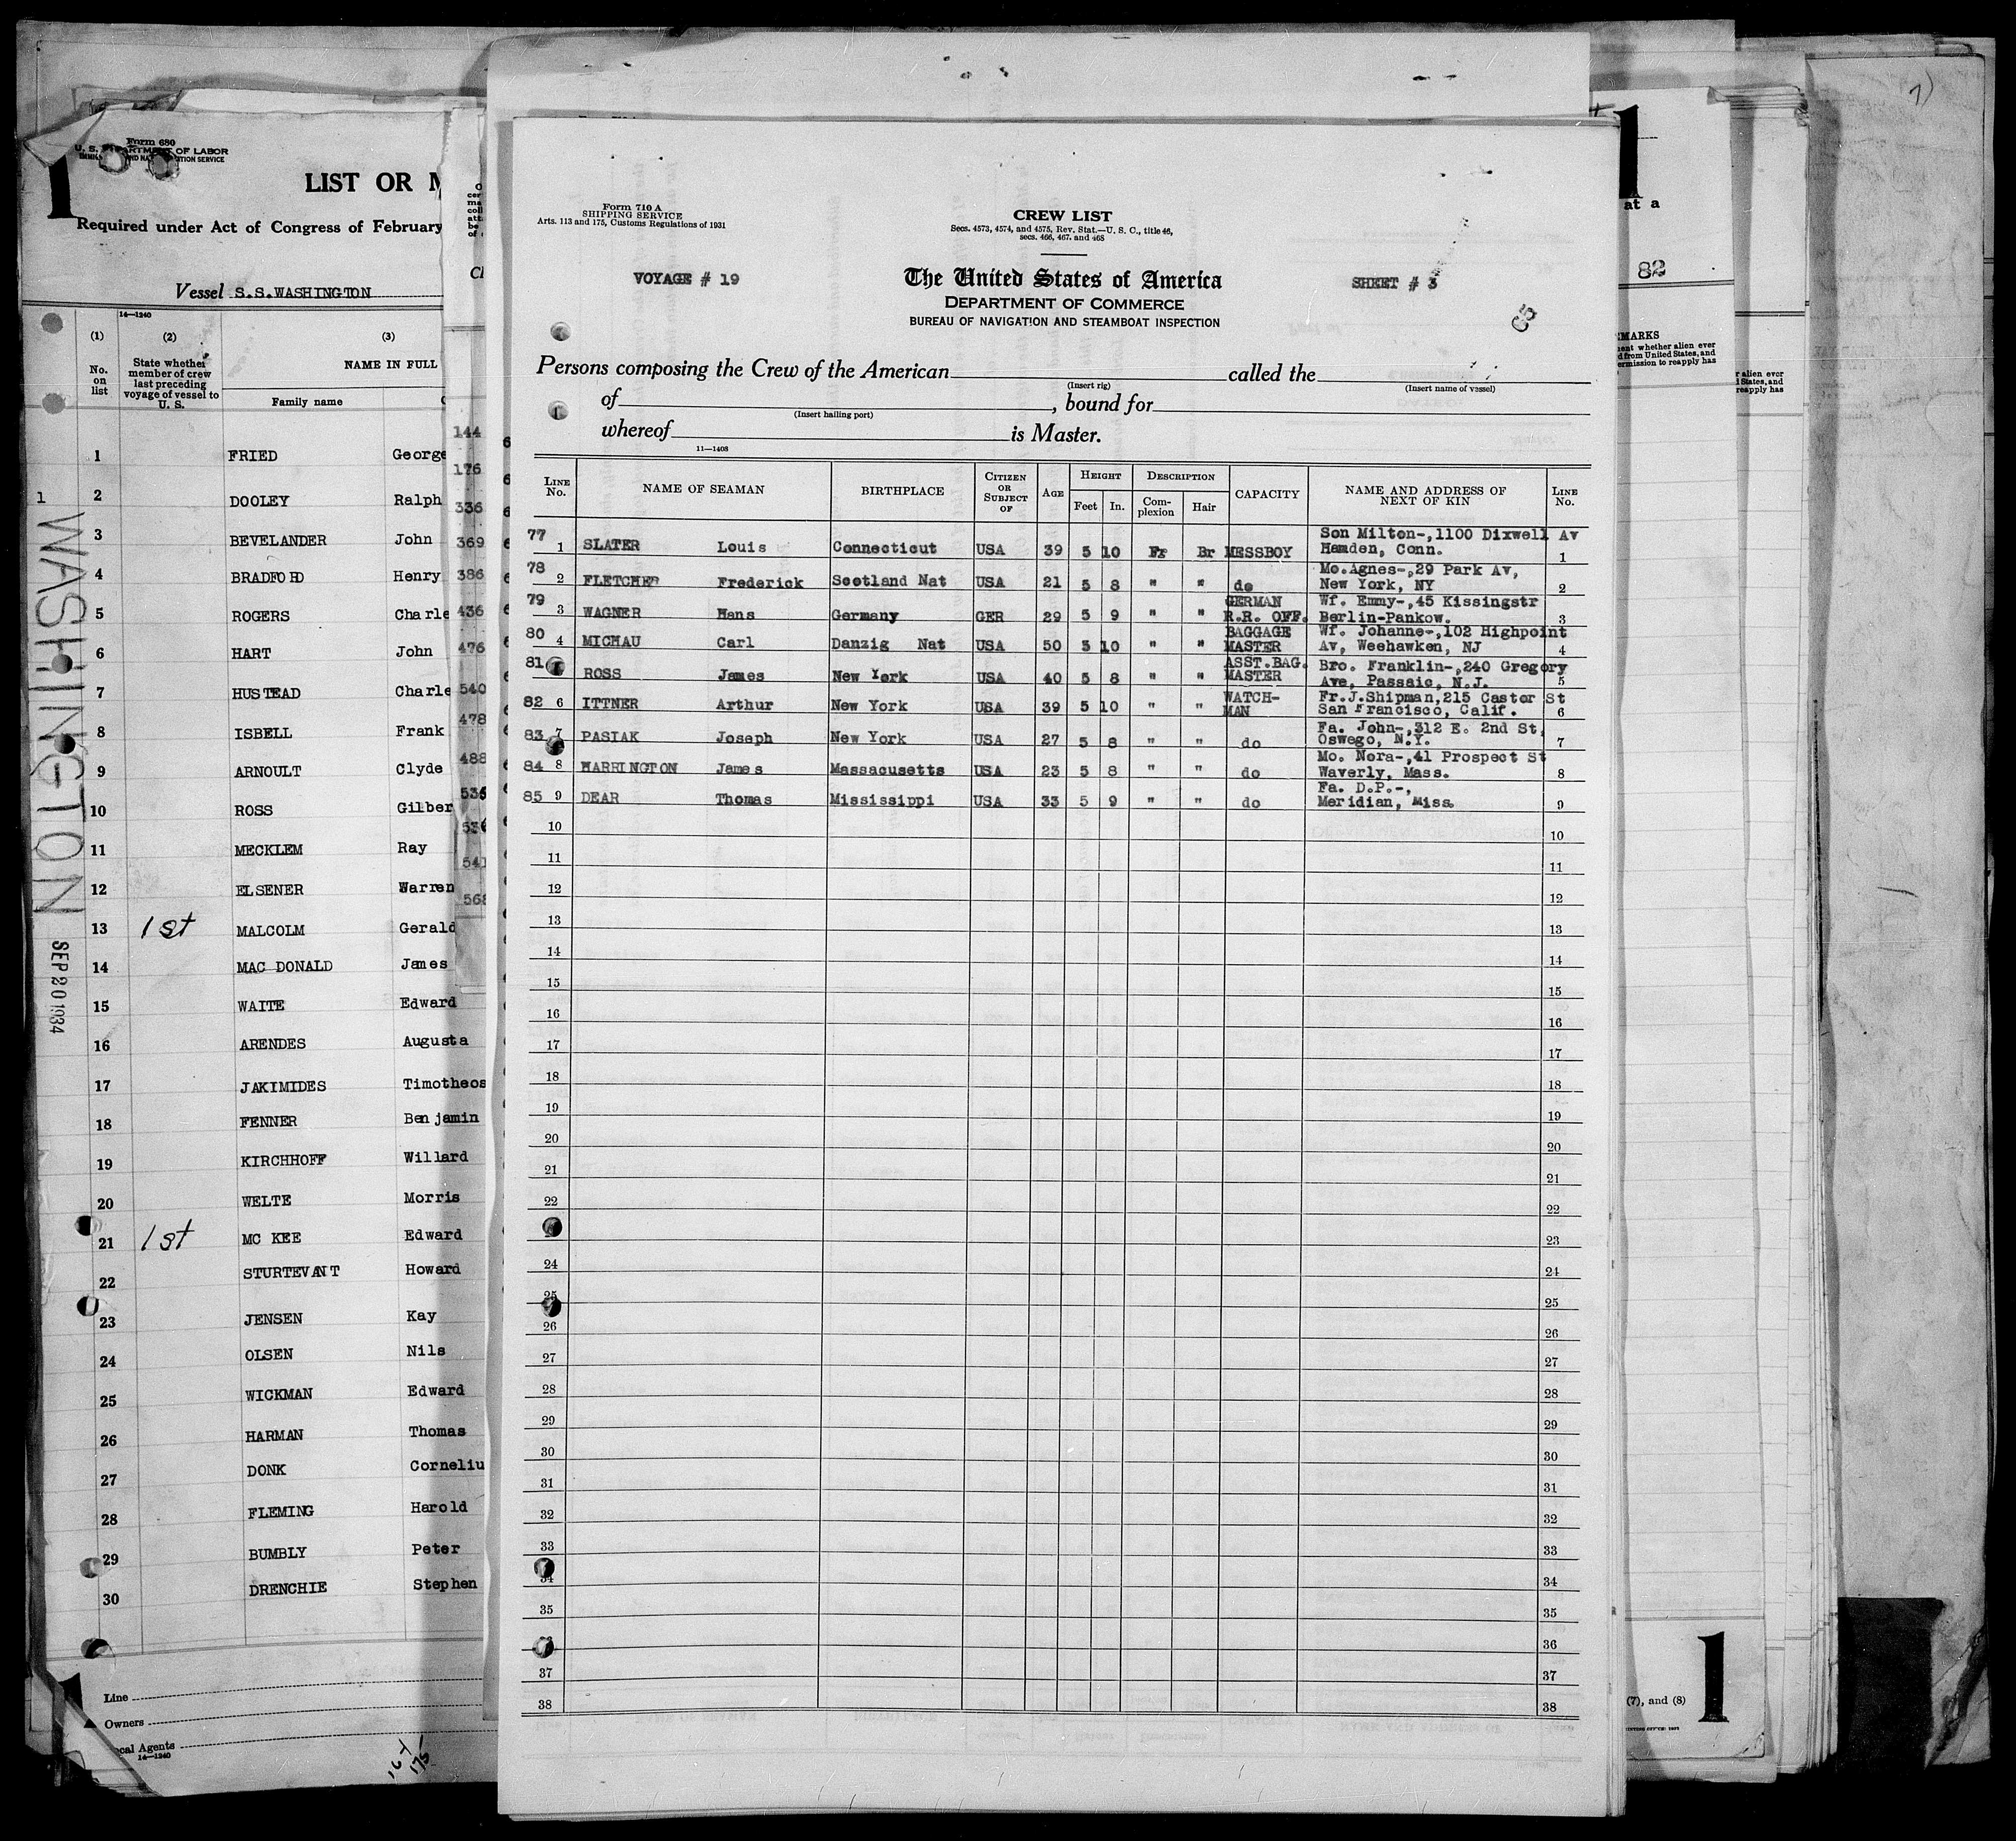 Form 680
U. S. DEPARTMENT OF LABOR
LIST OR M
Required under Act of Congress of February
Vessel S.S.WASHINGTON
14—1240
(1) (2) (3)
No. on list
State whether member of crew last preceding voyage of vessel to U. S.
NAME IN FULL
Family name
1 FRIED George
1 2 DOOLEY Ralph
3 BEVELANDER John
4 BRADFO HD Henry
5 ROGERS Charle
6 HART John
7 HUSTEAD Charle
8 ISBELL Frank
9 ARNOULT Clyde
10 ROSS Gilber
11 MECKLEM Ray
12 ELSENER Warren
13 1st MALCOLM Gerald
14 MAC DONALD James
15 WAITE Edward
16 ARENDES Augusta
17 JAKIMIDES Timotheos
18 FENNER Benjamin
19 KIRCHHOFF Willard
20 WELTE Morris
21 1st MC KEE Edward
22 STURTEVANT Howard
23 JENSEN Kay
24 OLSEN Nils
25 WICKMAN Edward
26 HARMAN Thomas
27 DONK Corneliu
28 FLEMING Harold
29 BUMBLY Peter
30 DRENCHIE Stephen
WASHINGTON
SEP 20 1934
Line
Owners
cal Agents
14—1240
16+
175
144
176
336
369
386
436
476
540
478
488
536
536
541
568
Form 710 A
SHIPPING SERVICE
Arts. 113 and 175, Customs Regulations of 1931
CREW LIST
Secs. 4573, 4574, and 4575, Rev. Stat.—U. S. C., title 46,
secs. 466, 467, and 468
VOYAGE # 19
The United States of America
SHEET # 3
DEPARTMENT OF COMMERCE
BUREAU OF NAVIGATION AND STEAMBOAT INSPECTION
85
Persons composing the Crew of the American called the
(Insert rig) (Insert name of vessel)
of , bound for
(Insert hailing port)
whereof is Master.
11—1408
LINE No. NAME OF SEAMAN BIRTHPLACE CITIZEN OR SUBJECT OF AGE HEIGHT Feet In. DESCRIPTION Complexion Hair CAPACITY NAME AND ADDRESS OF NEXT OF KIN LINE No.
77 1 SLATER Louis Connecticut USA 39 5 10 Fr Br MESSBOY Son Milton-,1100 Dixwell Av Hamden, Conn. 1
78 2 FLETCHER Frederick Scotland Nat USA 21 5 8 " " do Mo.Agnes-,29 Park Av, New York, NY 2
79 3 WAGNER Hans Germany GER 29 5 9 " " GERMAN R.R. OFF. Wf. Emmy-,45 Kissingstr Berlin-Pankow. 3
80 4 MICHAU Carl Danzig Nat USA 50 5 10 " " BAGGAGE MASTER Wf. Johanne-,102 Highpoint Av, Weehawken, NJ 4
81 ROSS James New York USA 40 5 8 " " ASST.BAG. MASTER Bro. Franklin-,240 Gregory Ave, Passaic, N.J. 5
82 6 ITTNER Arthur New York USA 39 5 10 " " WATCH-MAN Fr.J.Shipman,215 Castor St San Francisco, Calif. 6
83 7 PASIAK Joseph New York USA 27 5 8 " " do Fa. John-,312 E. 2nd St, Oswego, N.Y. 7
84 8 HARRINGTON James Massacusetts USA 23 5 8 " " do Mo. Nora-,41 Prospect St Waverly, Mass. 8
85 9 DEAR Thomas Mississippi USA 33 5 9 " " do Fa. D.P.-, Meridian, Miss. 9
10 10
11 11
12 12
13 13
14 14
15 15
16 16
17 17
18 18
19 19
20 20
21 21
22 22
23
24 24
25 25
26 26
27 27
28 28
29 29
30 30
31 31
32 32
33 33
34 34
35 35
36
37 37
38 38
1
at a
82
MARKS
ent whether alien ever
d from United States, and
ermission to reapply has
r alien ever
States, and
reapply has
(7), and (8)
1